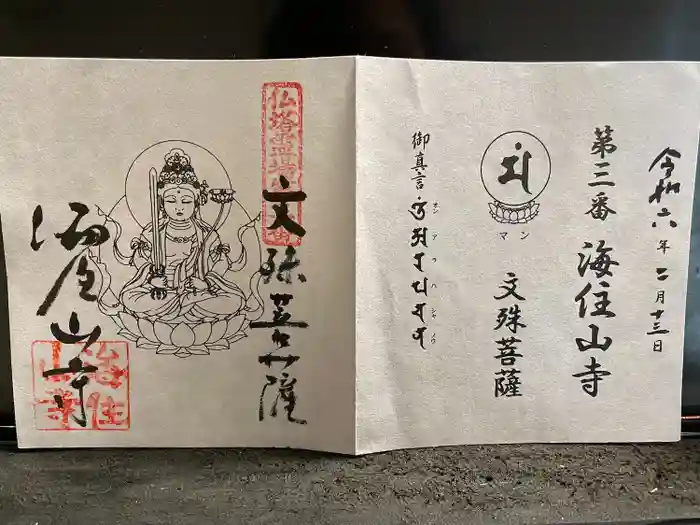 令和六年二月十三日
第三番 海住山寺
マン
文殊菩薩
御真言
仏塔霊場
文殊菩薩
海住山寺
海住山寺